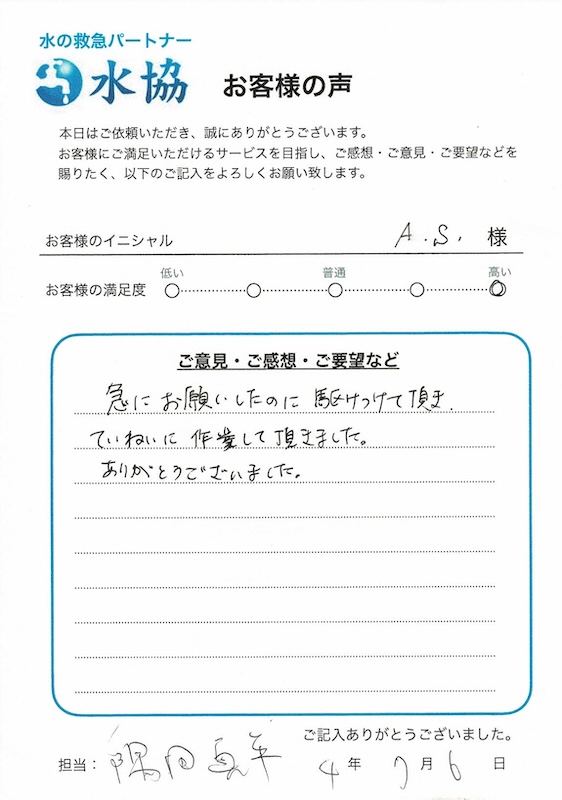 水の救急パートナー
水協 お客様の声
本日はご依頼いただき、誠にありがとうございます。
お客様にご満足いただけるサービスを目指し、ご感想・ご意見・ご要望などを
賜りたく、以下のご記入をよろしくお願い致します。
お客様のイニシャル A.S. 様
低い 普通 高い
お客様の満足度
ご意見・ご感想・ご要望など
急にお願いしたのに駆けつけて頂き、
ていねいに作業して頂きました。
ありがとうございました。
ご記入ありがとうございました。
担当: 隅田 4年 7月 6日